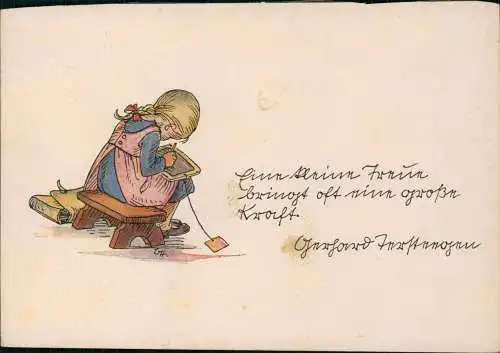 Eine kleine Treue
bringt oft eine große
Kraft.
Gerhard Tersteegen